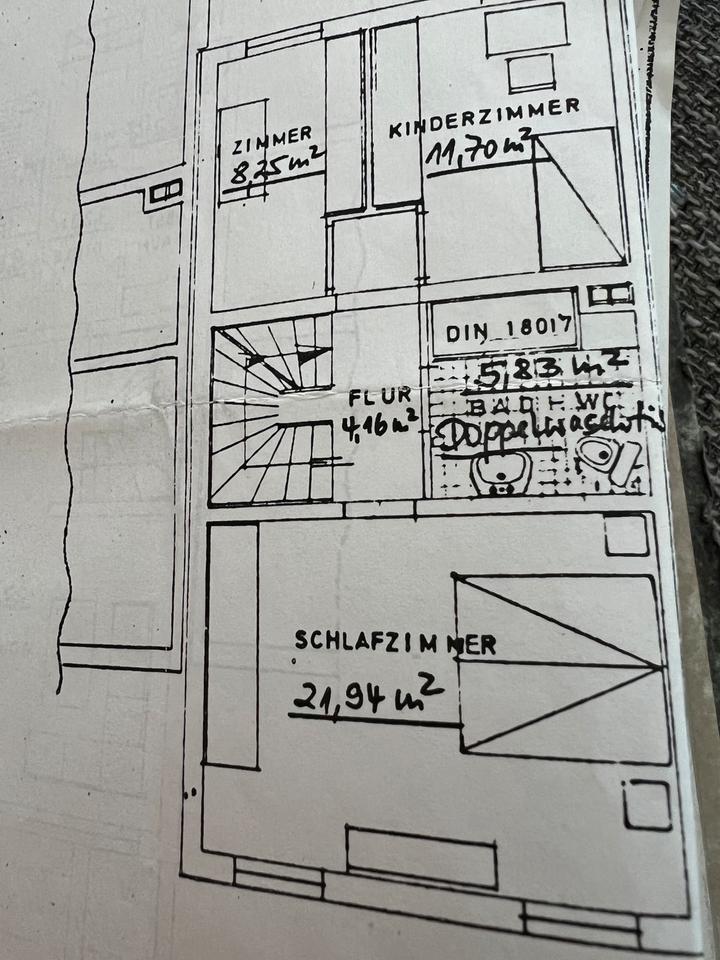 ZIMMER
8,25 m²
KINDERZIMMER
11,70 m²
DIN 18017
5,83 m²
BAD + WC
FLUR
4,16 m²
SCHLAFZIMMER
21,94 m²